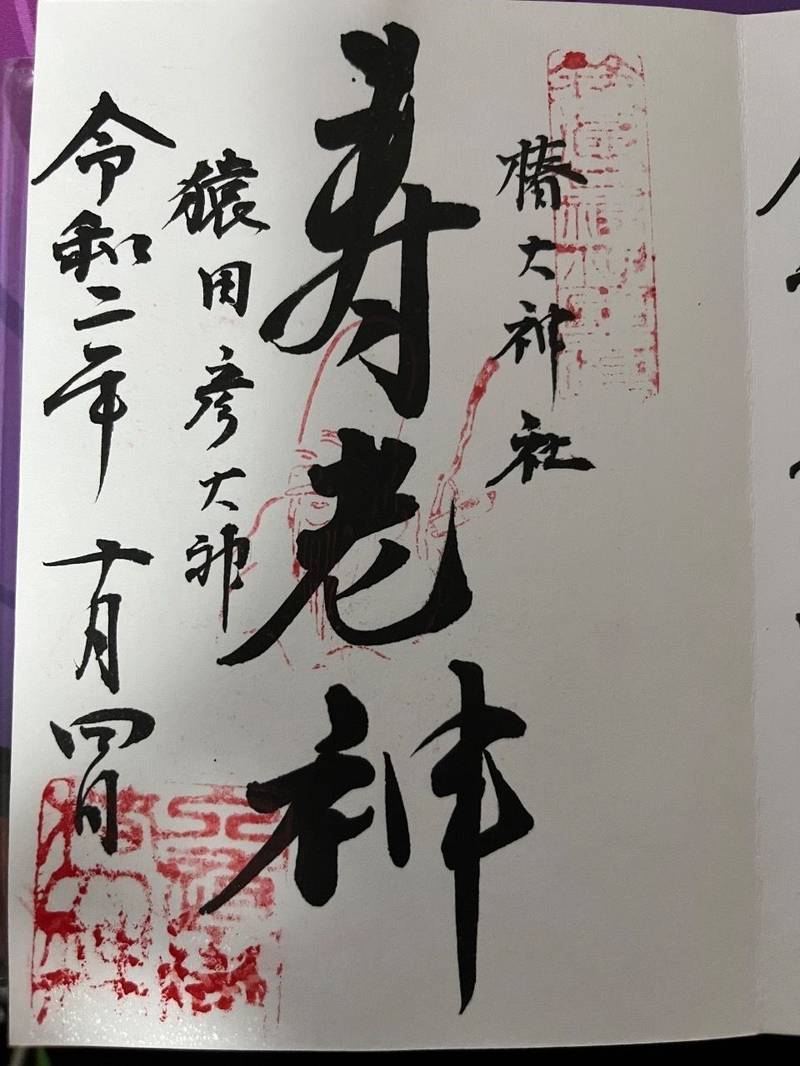 椿大神社
寿老神
猿田彦大神
令和二年十月四日